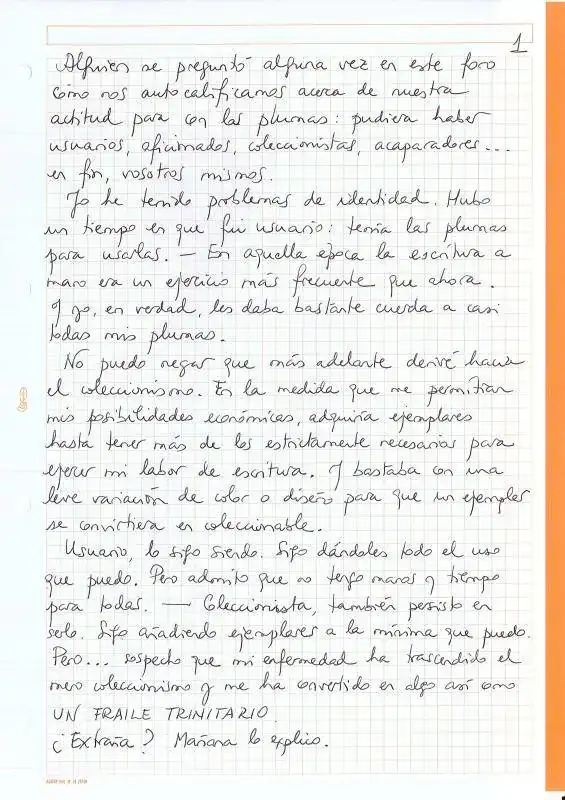 1
Alguien se preguntó alguna vez en este foro
cómo nos autocalificamos acerca de nuestra
actitud para con las plumas: pudiera haber
usuarios, aficionados, coleccionistas, acaparadores...
en fin, vosotros mismos.
Yo he tenido problemas de identidad. Hubo
un tiempo en que fui usuario: tenía las plumas
para usarlas. — En aquella época la escritura a
mano era un ejercicio más frecuente que ahora.
Y yo, en verdad, les daba bastante cuerda a casi
todas mis plumas.
No puedo negar que más adelante derivé hacia
el coleccionismo. En la medida que me permitían
mis posibilidades económicas, adquiría ejemplares
hasta tener más de los estrictamente necesarios para
ejercer mi labor de escritura. Y bastaba con una
leve variación de color o diseño para que un ejemplar
se convirtiera en coleccionable.
Usuario, lo sigo siendo. Sigo dándoles todo el uso
que puedo. Pero admito que no tengo manos y tiempo
para todas. — Coleccionista, también persisto en
serlo. Sigo añadiendo ejemplares a la mínima que puedo.
Pero... sospecho que mi enfermedad ha trascendido el
mero coleccionismo y me ha convertido en algo así como
UN FRAILE TRINITARIO.
¿Extraña? Mañana lo explico.